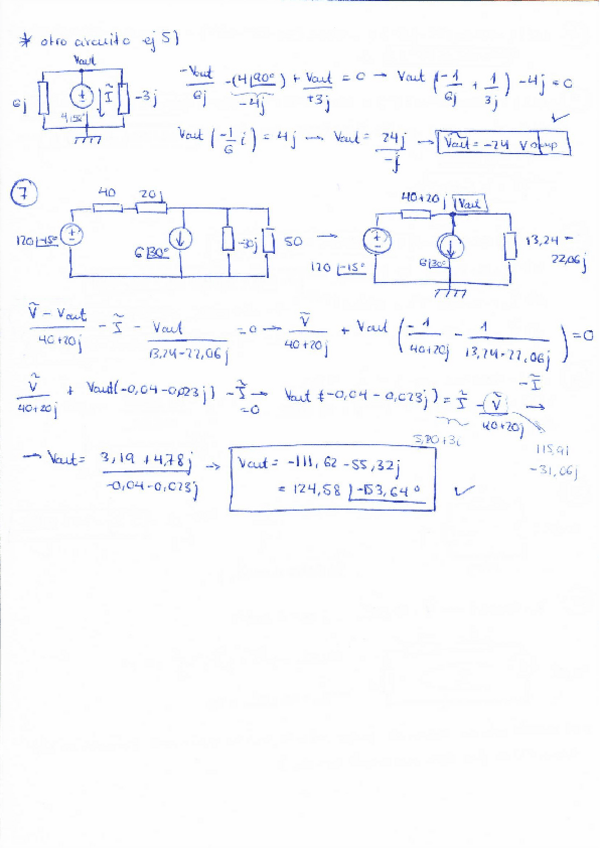 * otro circuito ej 5)
Vout
6j 4|90° Ĩ -3j
-Vout/6j -(4|90°) + Vout/+3j = 0 → Vout (-1/6j + 1/3j) - 4j = 0
-4j
Vout (-1/6 i) = 4j → Vout = 24j/-j → Ṽout = -24 V
7
40 20j
120|-15° 6|30° -30j 50 →
40+20j Vout
120|-15° 6|30° 13,24 - 22,06j
(Ṽ - Vout)/(40+20j) - Ĩ - Vout/(13,24-22,06j) = 0 → Ṽ/(40+20j) + Vout (-1/(40+20j) - 1/(13,24-22,06j)) = 0
- Ĩ
Ṽ/(40+20j) + Vout(-0,04-0,023j) - Ĩ = 0 → Vout (-0,04-0,023j) = Ĩ - Ṽ/(40+20j) →
115,91
-31,06j
→ Vout = (3,19+4,78j)/(-0,04-0,023j) → Vout = -111,62 - 55,32j
= 124,58 |-153,64°